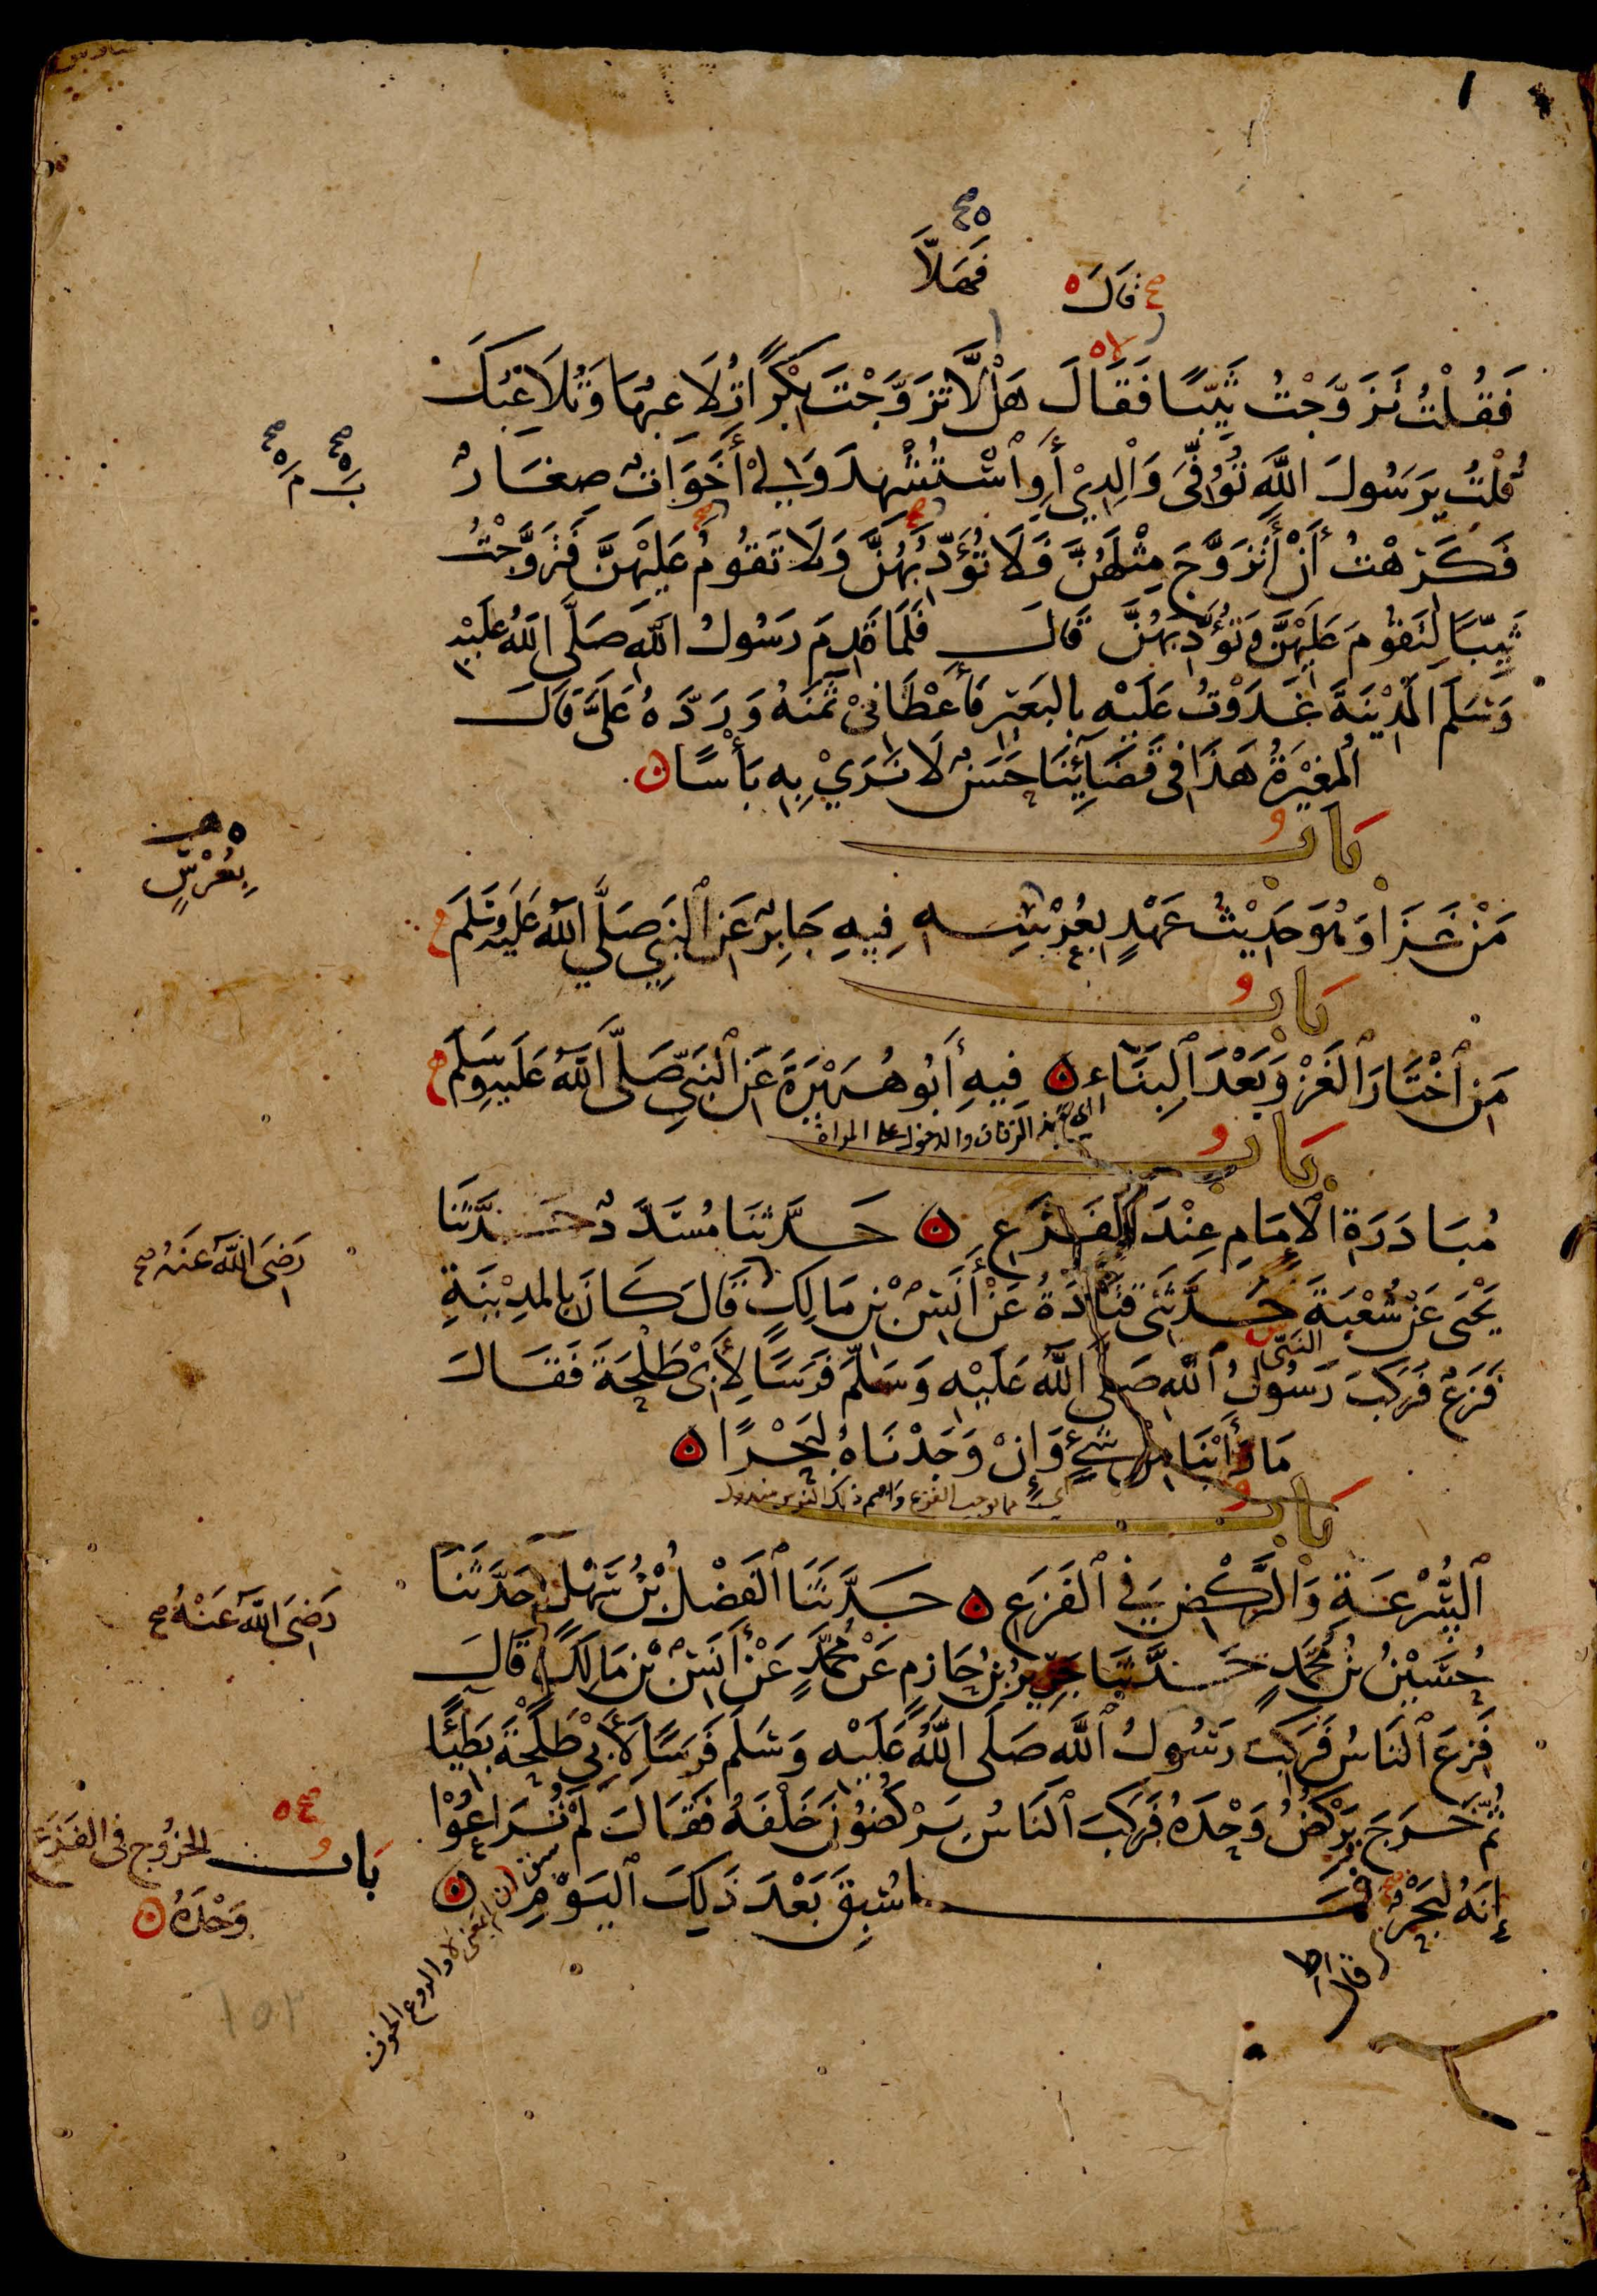 ١
صح
فَهَلَّا
قَالَ
فَقُلْتُ تَزَوَّجْتُ ثَيِّبًا فَقَالَ هَلَّا تَزَوَّجْتَ بِكْرًا تُلَاعِبُهَا وَتُلَاعِبُكَ
قُلْتُ يَرَسُولَ اللَّهِ تُوُفِّيَ وَالِدِيْ أَوِ اسْتُشْهِدَ وَلِيْ أَخَوَاتٌ صِغَارٌ
فَكَرِهْتُ أَنْ أَتَزَوَّجَ مِثْلَهُنَّ فَلَا تُؤَدِّبُهُنَّ وَلَا تَقُومُ عَلَيْهِنَّ فَتَزَوَّجْتُ
ثَيِّبًا لِتَقُومَ عَلَيْهِنَّ وَتُؤَدِّبَهُنَّ قَالَ فَلَمَّا قَدِمَ رَسُولُ اللَّهِ صَلَّى اللَّهُ عَلَيْهِ
وَسَلَّمَ الْمَدِيْنَةَ غَدَوْتُ عَلَيْهِ بِالْبَعِيْرِ فَأَعْطَانِيْ ثَمَنَهُ وَرَدَّهُ عَلَيَّ قَالَ
الْمُغِيْرَةُ هَذَا فِي قَضَائِنَا حَسَنٌ لَا نَرَيْ بِهِ بَأْسًا
بَابُ
مَنْ غَزَا وَهُوَ حَدِيْثُ عَهْدٍ بِعُرْسِهِ فِيهِ جَابِرٌ عَنِ النَّبِيِّ صَلَّى اللَّهُ عَلَيْهِ وَسَلَّمَ
بِعُرْسٍ
بَابُ
مَنِ اخْتَارَ الْغَزْوَ بَعْدَ الْبِنَاءِ فِيهِ أَبُو هُرَيْرَةَ عَنِ النَّبِيِّ صَلَّى اللَّهُ عَلَيْهِ وَسَلَّمَ
الزفاف والدخول على المراة
بَابُ
مُبَادَرَةِ الْإِمَامِ عِنْدَ الْفَزَعِ حَدَّثَنَا مُسَدَّدٌ حَدَّثَنَا
يَحْيَى عَنْ شُعْبَةَ حَدَّثَنِي قَتَادَةُ عَنْ أَنَسِ بْنِ مَالِكٍ قَالَ كَانَ بِالْمَدِيْنَةِ
رَضِيَ اللَّهُ عَنْهُ صح
النَّبِيُّ
فَزَعٌ فَرَكِبَ رَسُولُ اللَّهِ صَلَّى اللَّهُ عَلَيْهِ وَسَلَّمَ فَرَسًا لِأَبِيْ طَلْحَةَ فَقَالَ
مَا رَأَيْنَا مِنْ شَيْءٍ وَإِنْ وَجَدْنَاهُ لَبَحْرًا
مما يوجب الفزع
بَابُ
السُّرْعَةِ وَالرَّكْضِ فِي الْفَزَعِ حَدَّثَنَا الْفَضْلُ بْنُ سَهْلٍ حَدَّثَنَا
حُسَيْنُ بْنُ مُحَمَّدٍ حَدَّثَنَا جَرِيْرُ بْنُ حَازِمٍ عَنْ مُحَمَّدٍ عَنْ أَنَسِ بْنِ مَالِكٍ قَالَ
رَضِيَ اللَّهُ عَنْهُ صح
فَزِعَ النَّاسُ فَرَكِبَ رَسُولُ اللَّهِ صَلَّى اللَّهُ عَلَيْهِ وَسَلَّمَ فَرَسًا لِأَبِيْ طَلْحَةَ بَطِيْئًا
ثُمَّ خَرَجَ يَرْكُضُ وَحْدَهُ فَرَكِبَ النَّاسُ يَرْكُضُوْنَ خَلْفَهُ فَقَالَ لَمْ تُرَاعُوْا
إِنَّهُ لَبَحْرٌ فَمَا سُبِقَ بَعْدَ ذَلِكَ الْيَوْمِ
قال
بَابُ الْخُرُوْجِ فِي الْفَزَعِ
وَحْدَهُ
والروع الخوف
١٥٢